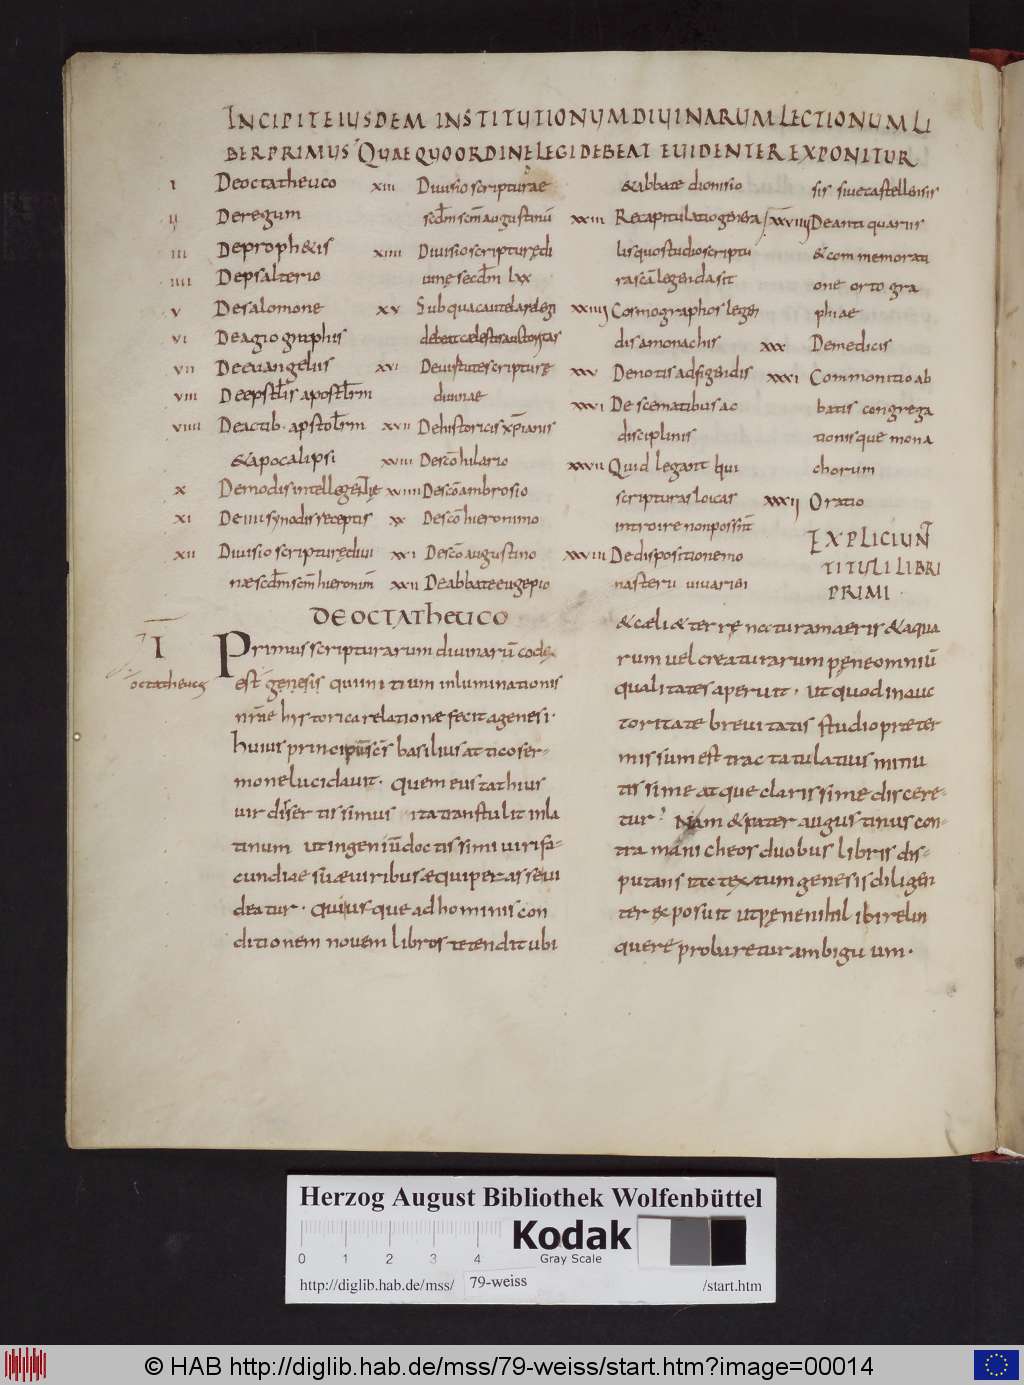 INCIPIT EIUSDEM INSTITUTIONUM DIUINARUM LECTIONUM LI
BER PRIMUS QUAE QUO ORDINE LEGI DEBEAT EUIDENTER EXPONITUR
I De octatheuco
II De regum
III De proph&is
IIII De psalterio
V De salomone
VI De agiographis
VII De euangeliis
VIII De epstl̄is apostl̄rm
VIIII De actib· apstol̄rm
& apocalipsi
X De modis intellegentię
XI De IIII synodis receptis
XII Diuisio scripturę diui
nae scd̄m scm̄ hieronim̄
XIII Diuisio scripturae
scd̄m scm̄ augustinū
XIIII Diuisio scripturę di
uinę secd̄m lxx
XV Sub qua cautela relegi
debeat caelestis auctoritas
XVI De uirtute scripturę
diuinae
XVII De historicis xp̄ianis
XVIII De sc̄o hilario
XVIIII De sc̄o ambrosio
XX De sc̄o hieronimo
XXI De sc̄o augustino
XXII De abbate eugepio
& abbate dionisio
XXIII Recapitulatio genera
lis quo studio scriptu
ra sc̄a legenda sit
XXIIII Cosmographos legen
dis a monachis
XXV De notis adfigendis
XXVI De scematibus ac
disciplinis
XXVII Quid legant qui
scripturas loicas
introire non possunt
XXVIII De dispositione mo
nasterii uiuarien
sis siue castellensis
XXVIIII De antiquariis
& commemorati
one ortogra
phiae
XXX De medicis
XXXI Commonitio ab
batis congrega
tionisque mona
chorum
XXXII Oratio
EXPLICIUNT
TITULI LIBRI
PRIMI
DE OCTATHEUCO
I
octatheucus
Primus scripturarum diuinarū codex
est genesis qui initium inluminationis
nr̄ae historica relatione fecit a genesi·
huius principiis sc̄s basilius attico ser-
mone lucidauit· quem eustathius
uir disertissimus ita transtulit in la
tinum ut ingeniū doctissimi uiri fa-
cundiae suae uiribus aequiperasse ui
deatur· Qui usque ad hominis con
ditionem nouem libros tetendit ubi
& caeli & terrę naturam aeris & aqua
rum uel creaturarum pęne omniū
qualitates aperuit· ut quod in auc
toritate breuitatis studio preter
missum est tractatu latius minu
tissime atque clarissime discere-
tur· Nam & pater augustinus con-
tra manicheos duobus libris dis-
putans ita textum genesis diligen
ter exposuit ut pęne nihil ibi relin
quere probaretur ambiguum·
Herzog August Bibliothek Wolfenbüttel
0 1 2 3 4
Kodak
Gray Scale
http://diglib.hab.de/mss/ 79-weiss /start.htm
© HAB http://diglib.hab.de/mss/79-weiss/start.htm?image=00014